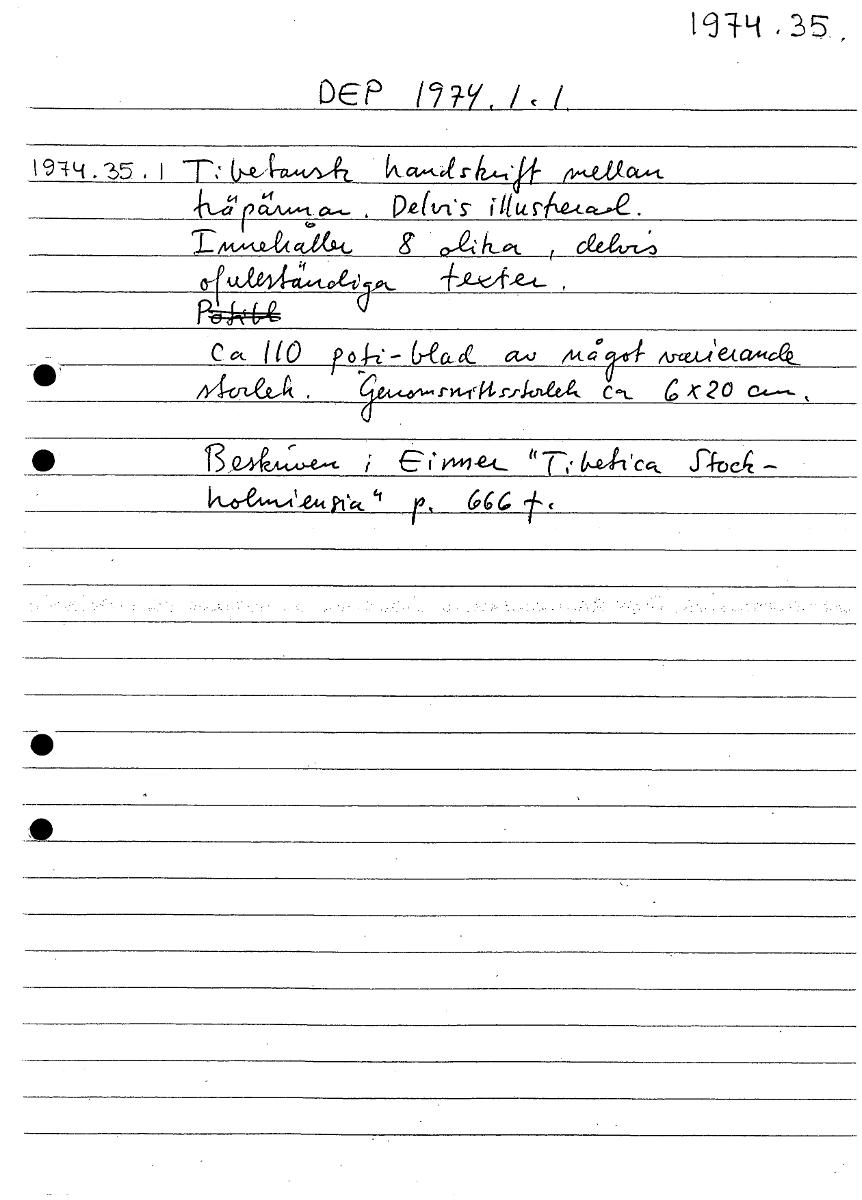 1974.35.
DEP 1974.1.1
1974.35.1 Tibetansk handskrift mellan
träpärmar. Delvis illustrerad.
Innehåller 8 olika, delvis
ofullständiga texter.
Ca 110 poti-blad av något varierande
storlek. Genomsnittsstorlek ca 6x20 cm.
Beskriven i Eimer "Tibetica Stock-
holmiensia" p. 666 f.